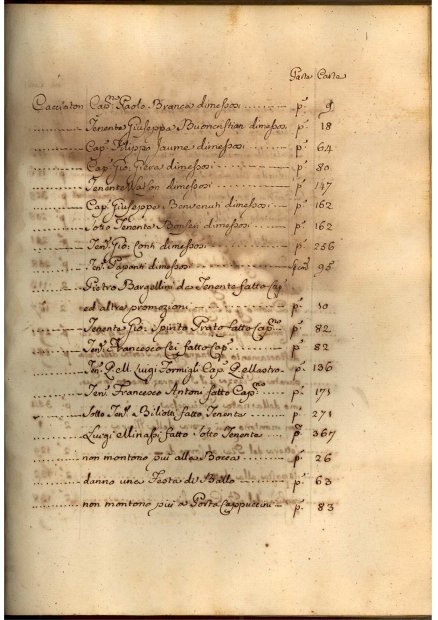 Parte Carte
Cacciatori Cap.ⁿ Paolo Branca dimesso p.ᵃ 9
Tenente Giuseppe Buoncristian dimesso p.ᵃ 18
Cap.ⁿ Filippo Jaume dimesso p.ᵃ 64
Cap.ⁿ Gio: Giera dimesso p.ᵃ 80
Tenente Walson dimesso p.ᵃ 147
Cap.ⁿ Giuseppe Benvenuti dimesso p.ᵃ 162
Sotto Tenente Bonsei dimesso p.ᵃ 162
Ten.ᵉ Gio: Conti dimesso p.ᵃ 256
Ten.ᵉ Paponti dimesso 95
Pietro Bargellini da Tenente fatto Cap.ⁿ
ed altre promozioni p.ᵃ 10
Tenente Gio: Spirito Prato fatto Cap.ⁿᵒ p.ᵃ 82
Ten.ᵉ Francesco Cei fatto Cap.ⁿᵒ p.ᵃ 82
Ten.ᵉ Luigi Formigli Cap.ⁿᵒ p.ᵃ 136
Ten.ᵉ Francesco Antoni fatto Cap.ⁿᵒ p.ᵃ 171
Sotto Ten.ᵉ Biliotti fatto Tenente p.ᵃ 271
Luigi Minassi fatto Sotto Tenente p.ᵃ 367
non montono più alle Bocca p.ᵃ 26
danno una Festa di Ballo p.ᵃ 63
non montono più a Porta Cappuccini p.ᵃ 83